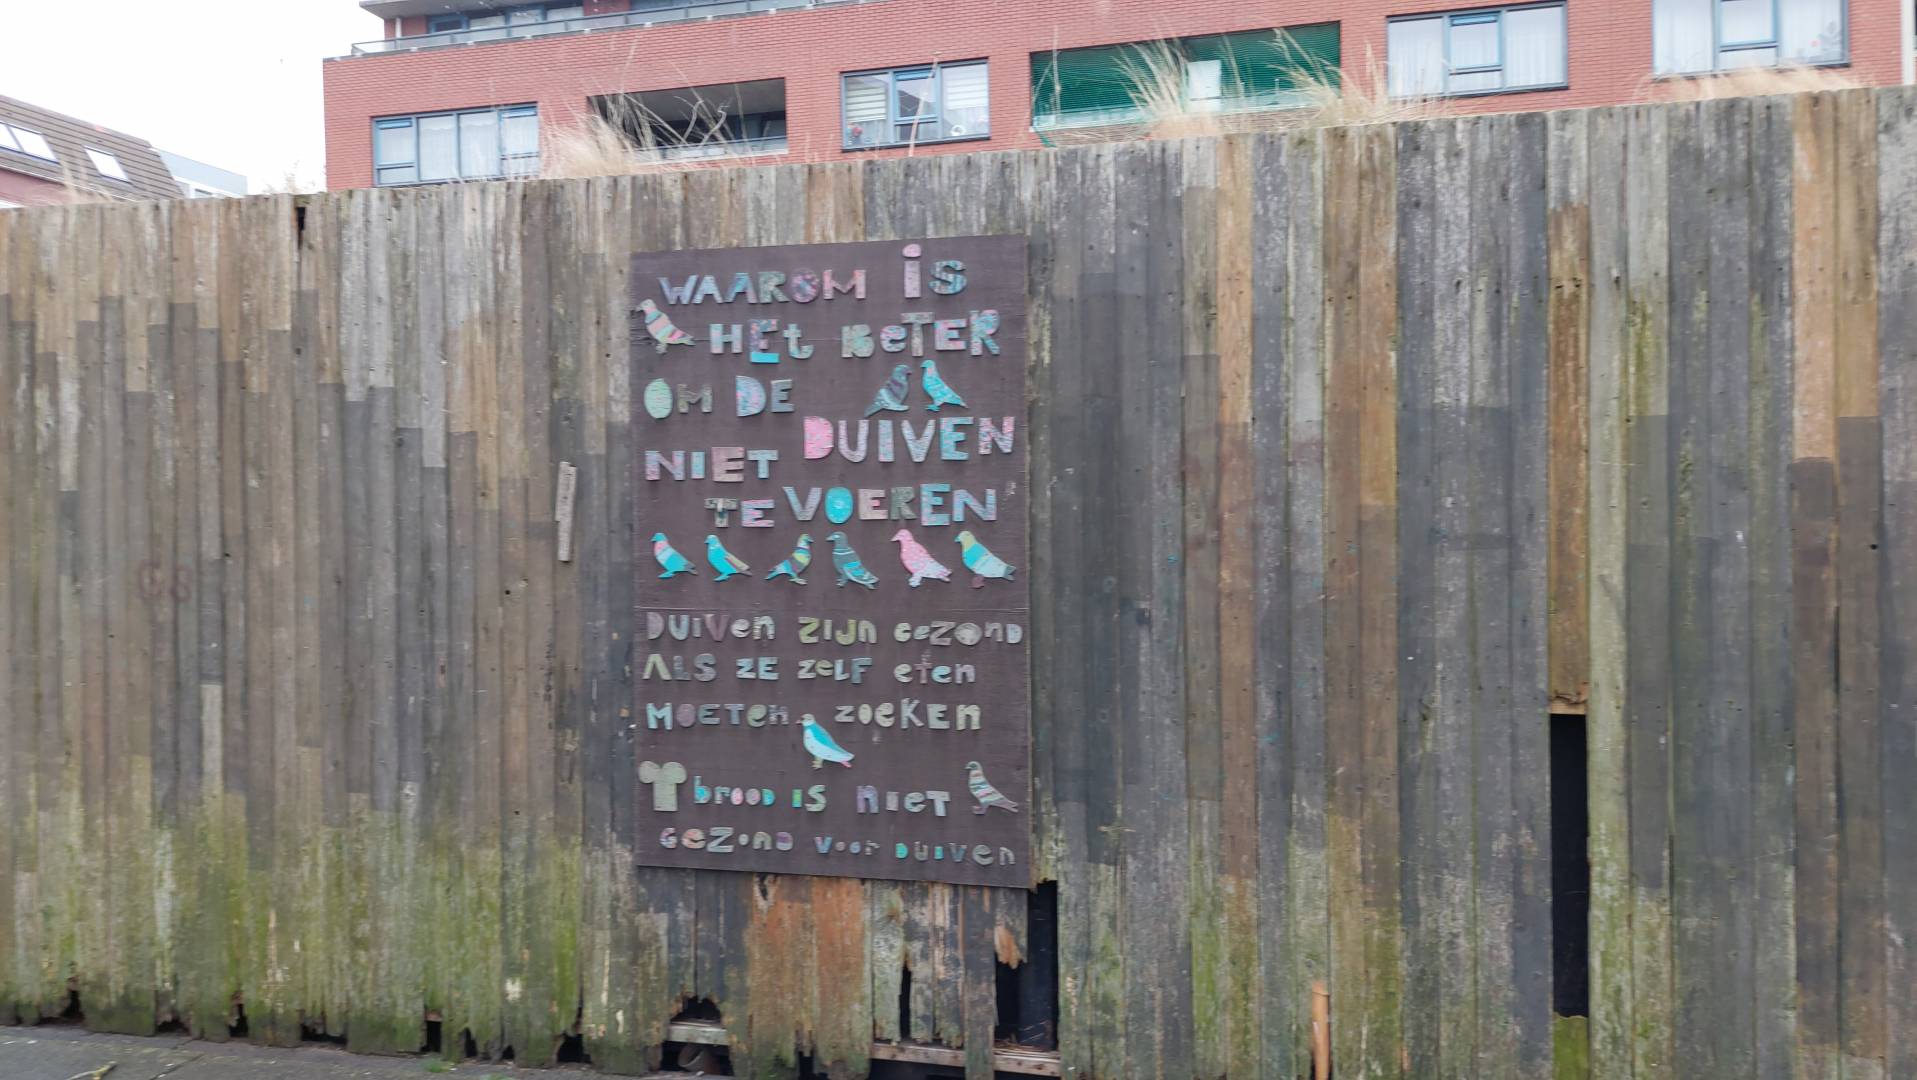 WAAROM iS
HEt BeTER
OM DE
DUIVEN
NIET
TE VOEREN
DUIVen ZIJn GeZOnD
ALS ZE ZeLF eten
MOETen ZOEKEN
brood iS nIeT
GeZonD Voor DUIVen